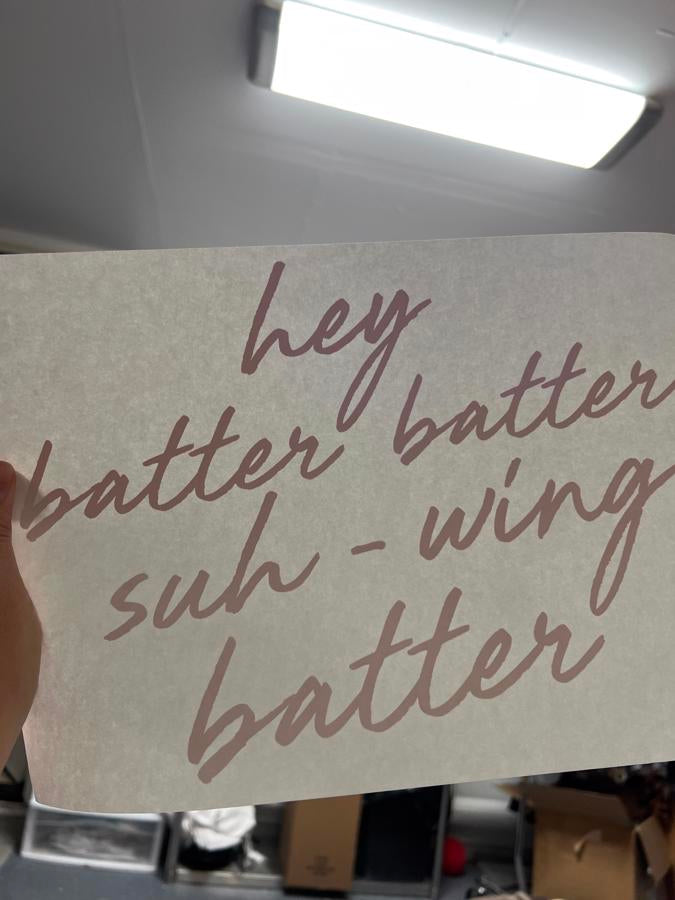 hey
batter batter
suh - wing
batter